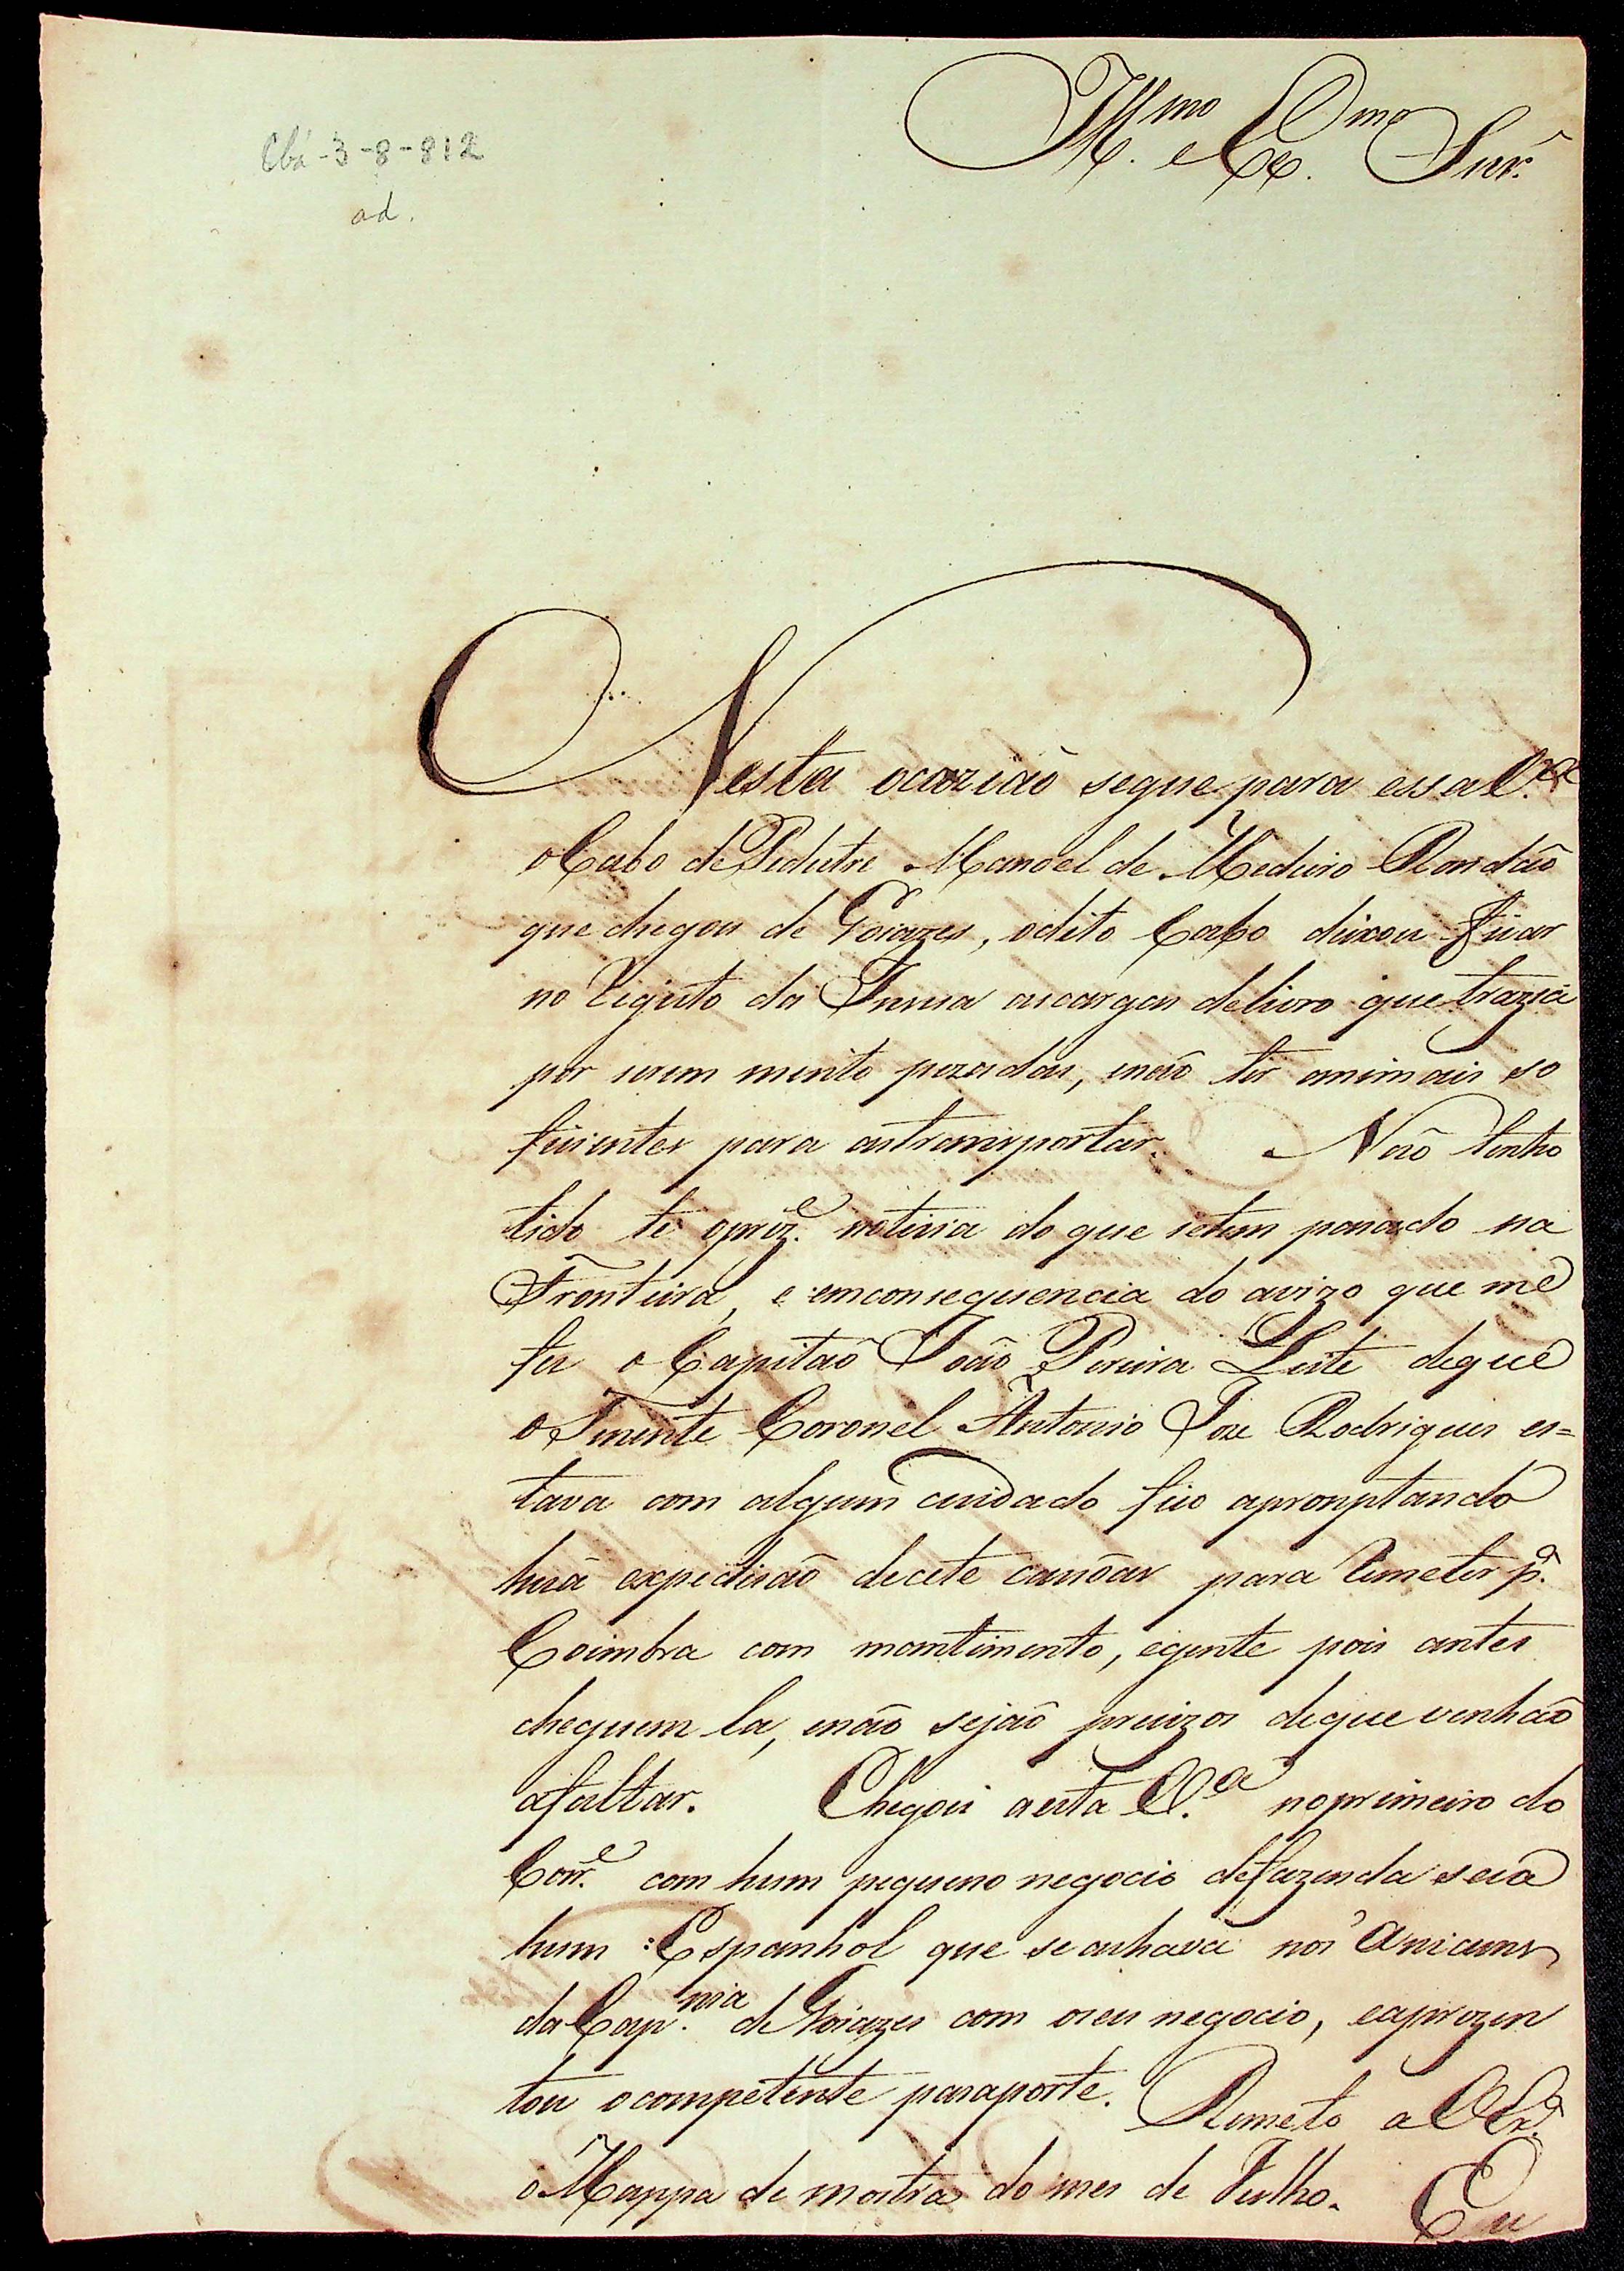 Cbá-3-8-812
ad.
Ill.mo e Ex.mo Snr.
Nesta ocaziaõ segue para essa V.ª
o Cabo de Pedestre Manoel de Medeiro Rondaõ
que chegou de Goiazes, o dito Cabo deixou ficar
no Rigisto da Insua as cargas de livro que trazia
por serem muito pezadas, e naõ ter animais so
ficientes para as transportar. Naõ tenho
tido te o prez.e noticia do que se tem passado na
Fronteira, e em consequencia do avizo que me
fes o Capitaõ Joaõ Pereira Leite de que
o Tenente Coronel Antonio Joze Rodrigues es=
tava com algum cuidado fico apromptando
huã expediçaõ de cete canôas para Remeter p.ª
Coimbra com mantimento, e gente pois antes
cheguem la, e naõ sejaõ precizos de que venhaõ
a faltar. Chegou a esta V.ª no primeiro do
Corr.e com hum pequeno negocio de fazenda seca
hum Espanhol que se achava nos Anicuns
da Cap.nia de Goiazes com o seu negocio, e aprezen
tou o competente pasaporte. Remeto a V Ex.ª
o Mappa de mostra do mes de Julho.
Eu